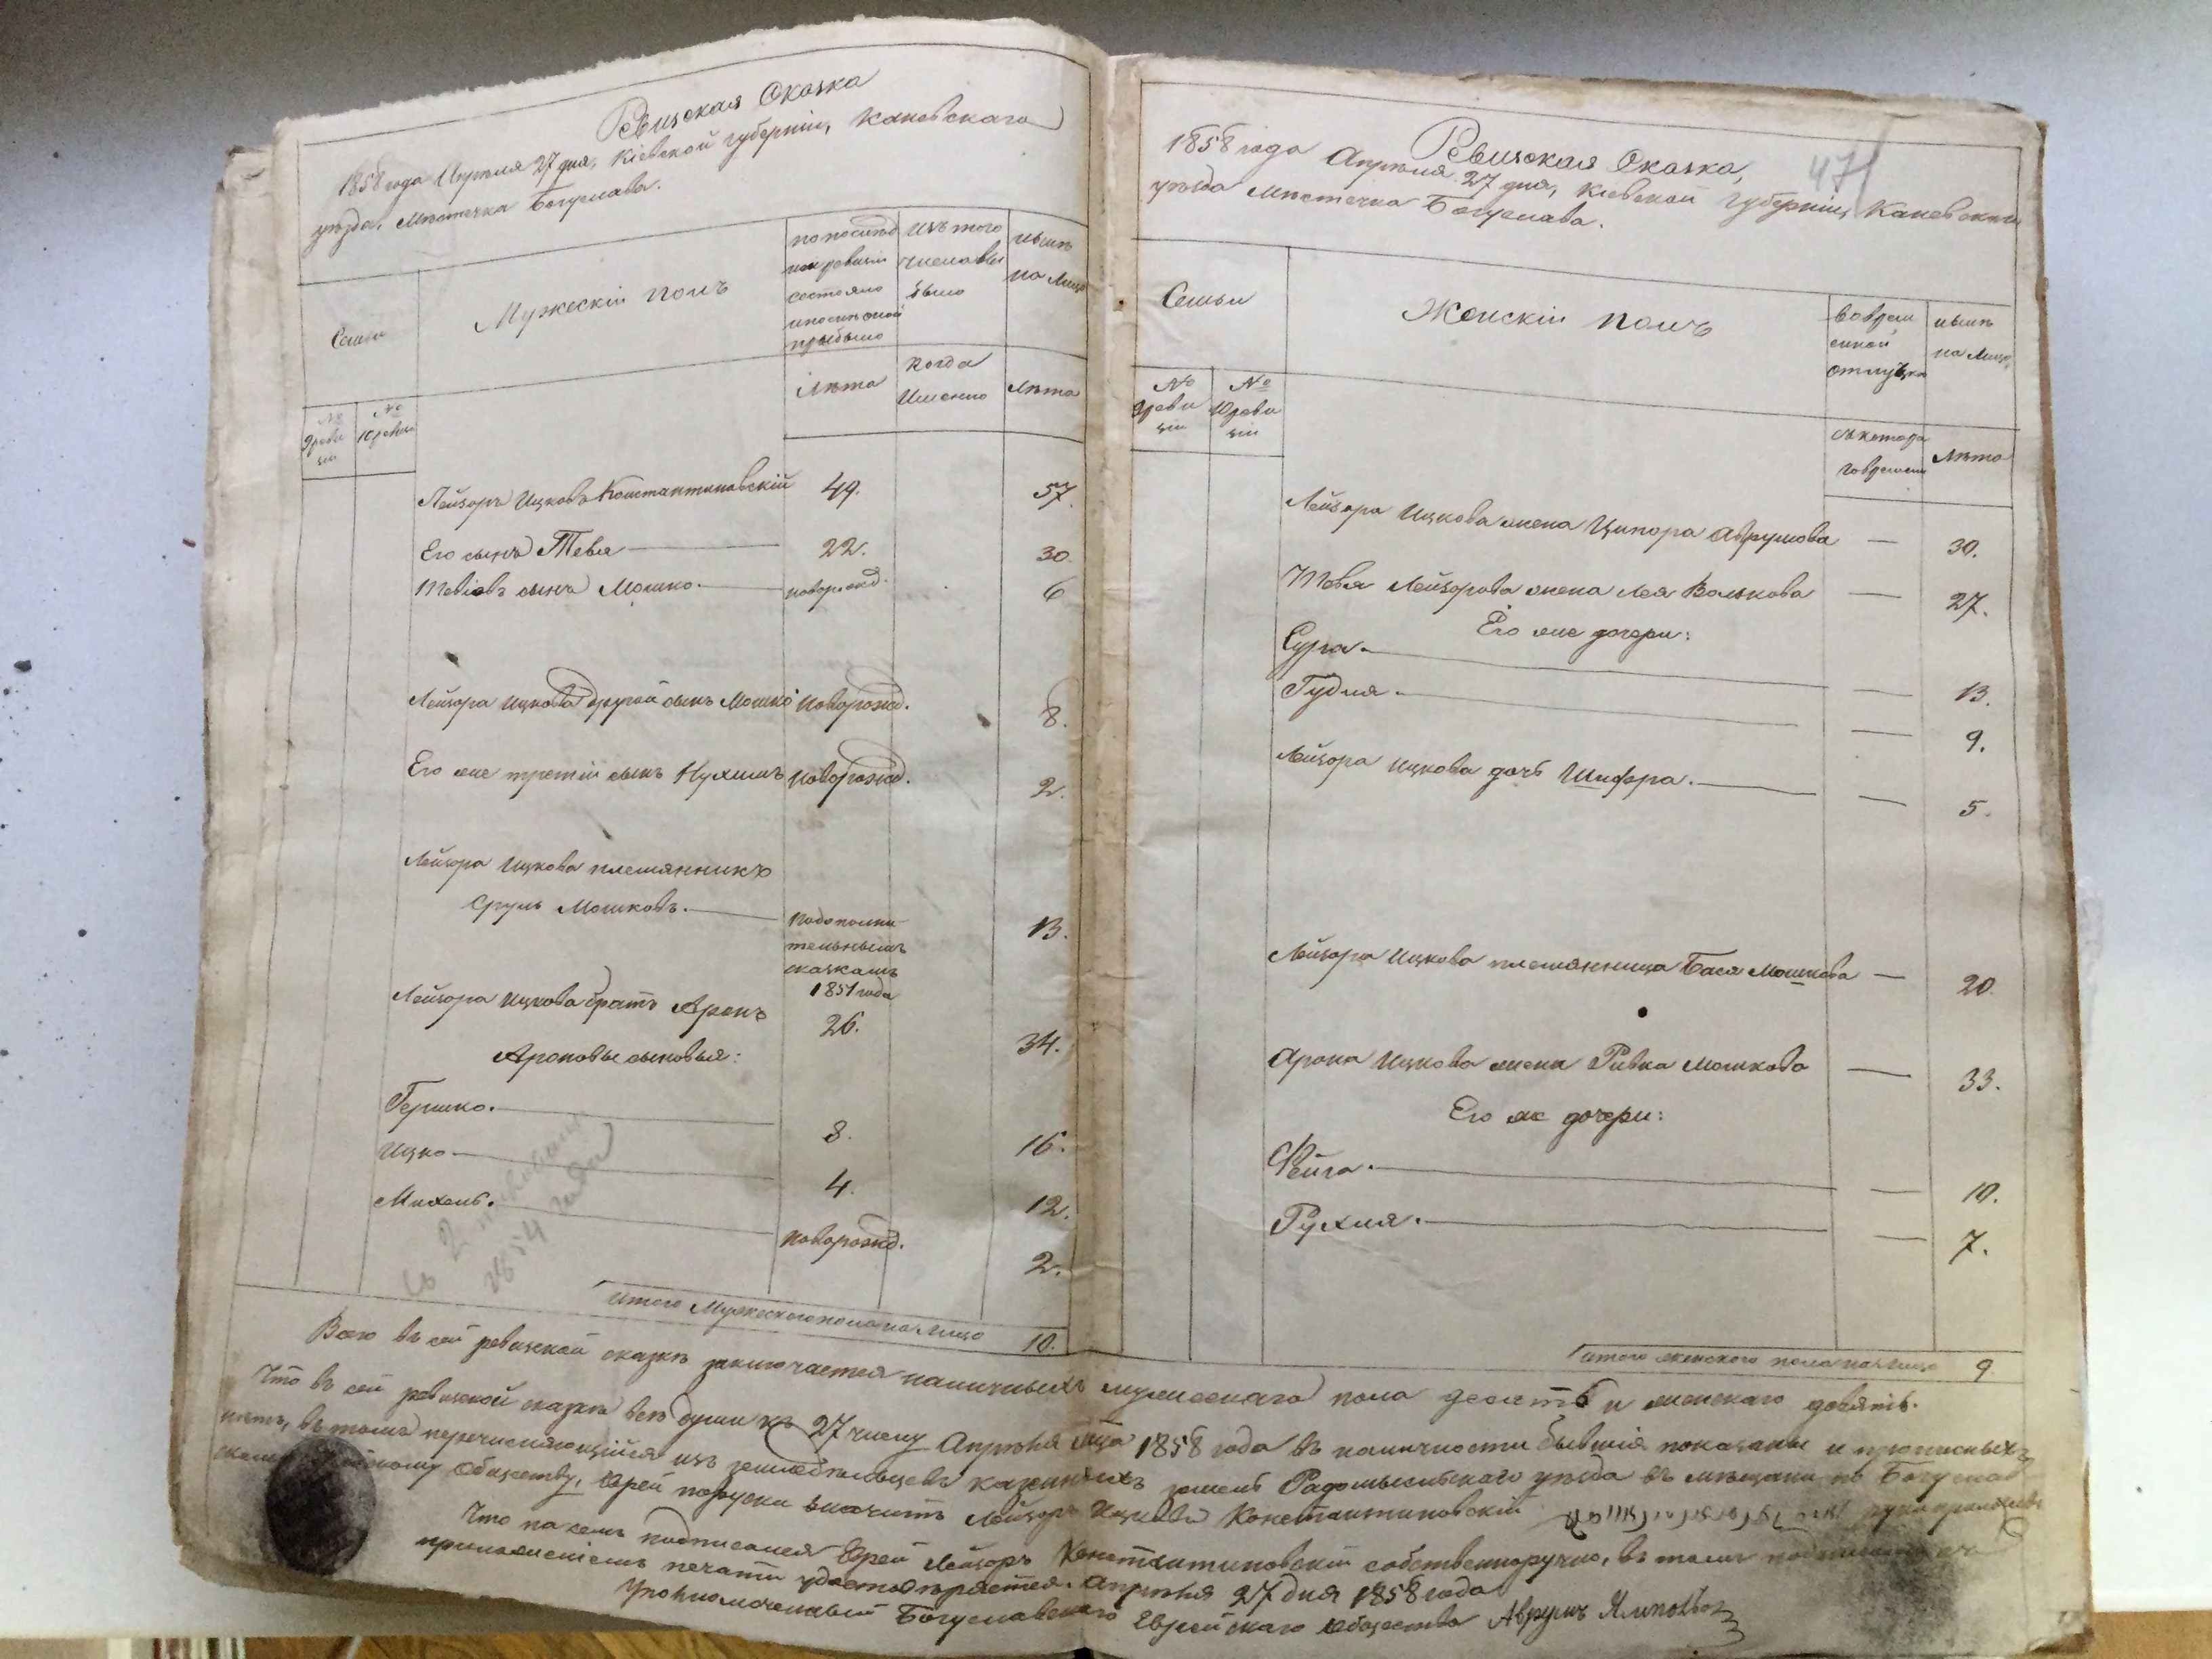 Ревизская Сказка
1858 года Апреля 27 дня, Кіевской губерніи, Каневскаго
уезда, Местечка Богуслава.
Семьи
Мужескій полъ
по последней ревизіи состояло и после оной прибыло
изъ того числа выбыло
ныне на лицо
лета
когда именно
лета
№ 9 реви зіи
№ 10 ревизіи
Лейзоръ Ицковъ Константиновскій 49. 57.
Его сынъ Тевя 22. 30.
Тевіовъ сынъ Мошко. новорожд. 6
Лейзора Ицкова другой сынъ Мошко новорожд. 8.
Его же третій сынъ Нухимъ новорожд. 2.
Лейзора Ицкова племянникъ
Сруль Мошковъ. 13.
по дополни
тельнымъ
сказкамъ
1851 года
Лейзора Ицкова братъ Аронъ 26. 34.
Ароновы сыновья:
Гершко. 8. 16.
Ицко. 4. 12.
Михель. новорожд. 2.
1854 года
Итого Мужескаго пола на лицо 10.
471
Ревизская Сказка,
1858 года Апреля 27 дня, Кіевской Губерніи, Каневскаго
уезда Местечка Богуслава.
Семьи
Женскій полъ
во врем енной отлучке
ныне на лицо,
№ 9 реви зіи
№ 10 реви зіи
съ котораго времени
лета
Лейзора Ицкова жена Ципора Аврумова — 30.
Тевя Лейзорова жена Лея Волькова — 27.
Его же дочери:
Сура. — 13.
Гудля. — 9.
Лейзора Ицкова дочь Шифра. — 5.
Лейзора Ицкова племянница Бася Мошкова — 20.
Арона Ицкова жена Ривка Мошкова — 33.
Его же дочери:
Фейга. — 10.
Рухля. — 7.
Итого женского пола на лицо 9.
Всего въ сей ревизской сказке заключается наличныхъ мужескаго пола десять и женскаго девять.
Что въ сей ревизской сказке все души къ 27 числу Апреля м҃ца 1858 года въ наличности бывшія показаны и прописныхъ
нетъ, въ томъ перечисляющійся изъ земледельцевъ казенныхъ земель Радомысльскаго уезда въ мещане по Богуслав
скому обществу, Еврей Лейзоръ Ицковъ Константиновскій руку приложилъ
Что на семъ подписался Еврей Лейзоръ Константиновскій собственноручно, въ томъ подписомъ съ
приложеніемъ печати удостоверяется. Апреля 27 дня 1858 года
Уполномоченный Богуславскаго Еврейскаго общества Аврумъ